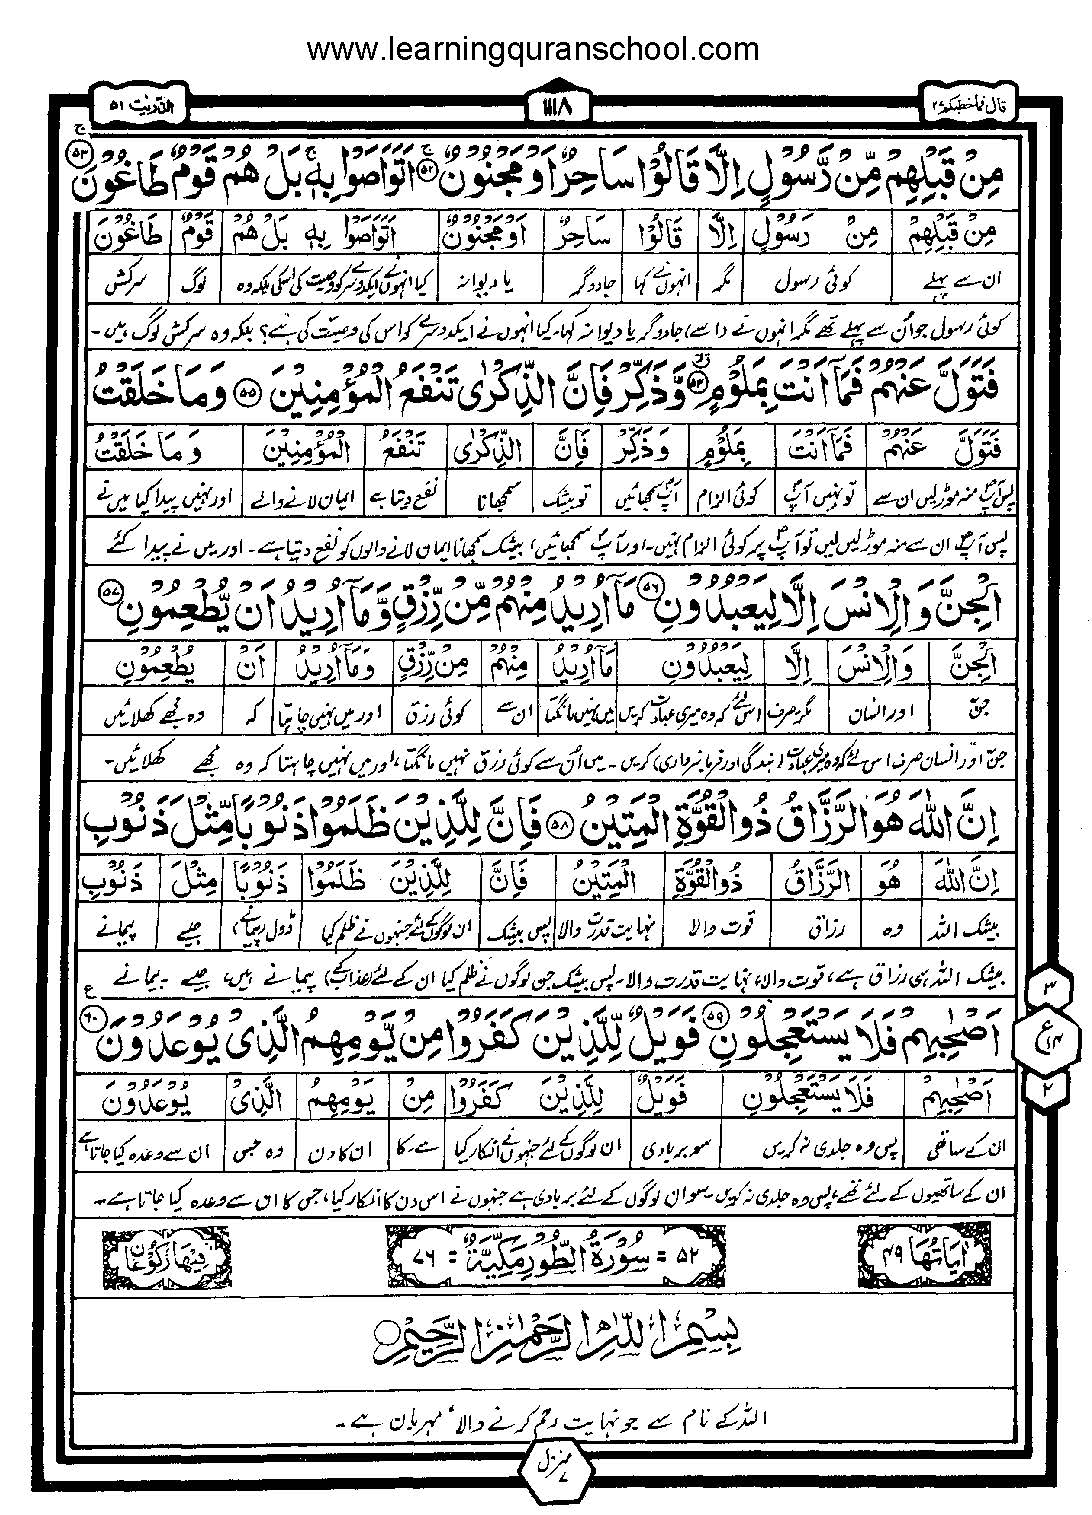 www.learningquranschool.com
قال فما خطبکم ٢٧
١١١٨
الذّٰریٰت ٥١
مِنْ قَبْلِهِمْ مِّنْ رَّسُوْلٍ اِلَّا قَالُوْا سَاحِرٌ اَوْ مَجْنُوْنٌ ٥٢ اَتَوَاصَوْا بِهٖ بَلْ هُمْ قَوْمٌ طَاغُوْنَ ٥٣
مِنْ قَبْلِهِمْ مِنْ رَسُوْلٍ اِلَّا قَالُوْا سَاحِرٌ اَوْ مَجْنُوْنٌ اَتَوَاصَوْا بِهٖ بَلْ هُمْ قَوْمٌ طَاغُوْنَ
ان سے پہلے کوئی رسول مگر انہوں نے کہا جادوگر یا دیوانہ کیا انہوں نے ایکدوسرے کو وصیت کی اسکی بلکہ وہ لوگ سرکش
کوئی رسول جو ان سے پہلے تھے مگر انہوں نے (اسے) جادوگر یا دیوانہ کہا۔ کیا انہوں نے ایکدوسرے کو اس کی وصیت کی ہے؟ بلکہ وہ سرکش لوگ ہیں۔
فَتَوَلَّ عَنْهُمْ فَمَآ اَنْتَ بِمَلُوْمٍ ٥٤ وَّذَكِّرْ فَاِنَّ الذِّكْرٰى تَنْفَعُ الْمُؤْمِنِيْنَ ٥٥ وَمَا خَلَقْتُ
فَتَوَلَّ عَنْهُمْ فَمَآ اَنْتَ بِمَلُوْمٍ وَذَكِّرْ فَاِنَّ الذِّكْرٰى تَنْفَعُ الْمُؤْمِنِيْنَ وَمَا خَلَقْتُ
پس آپ منہ موڑ لیں ان سے تو نہیں آپ کوئی الزام آپ سمجھائیں تو بیشک سمجھانا نفع دیتا ہے ایمان لانے والے اور نہیں پیدا کیا میں نے
پس آپ ان سے منہ موڑ لیں تو آپ پر کوئی الزام نہیں۔ اور آپ سمجھائیں، بیشک سمجھانا ایمان لانے والوں کو نفع دیتا ہے۔ اور میں نے پیدا کئے
الْجِنَّ وَالْاِنْسَ اِلَّا لِيَعْبُدُوْنِ ٥٦ مَآ اُرِيْدُ مِنْهُمْ مِّنْ رِّزْقٍ وَّمَآ اُرِيْدُ اَنْ يُّطْعِمُوْنِ ٥٧
الْجِنَّ وَالْاِنْسَ اِلَّا لِيَعْبُدُوْنِ مَآ اُرِيْدُ مِنْهُمْ مِنْ رِزْقٍ وَمَآ اُرِيْدُ اَنْ يُطْعِمُوْنِ
جن اور انسان مگر صرف اس لئے کہ وہ میری عبادت کریں میں نہیں مانگتا ان سے کوئی رزق اور میں نہیں چاہتا کہ وہ مجھے کھلائیں
جن اور انسان صرف اس لئے کہ وہ میری عبادت (بندگی اور فرمانبرداری) کریں۔ میں ان سے کوئی رزق نہیں مانگتا، اور میں نہیں چاہتا کہ وہ مجھے کھلائیں۔
اِنَّ اللّٰهَ هُوَ الرَّزَّاقُ ذُو الْقُوَّةِ الْمَتِيْنُ ٥٨ فَاِنَّ لِلَّذِيْنَ ظَلَمُوْا ذَنُوْبًا مِّثْلَ ذَنُوْبِ
اِنَّ اللّٰهَ هُوَ الرَّزَّاقُ ذُو الْقُوَّةِ الْمَتِيْنُ فَاِنَّ لِلَّذِيْنَ ظَلَمُوْا ذَنُوْبًا مِثْلَ ذَنُوْبِ
بیشک اللہ وہ رزاق قوت والا نہایت قدرت والا پس بیشک ان لوگوں کے لئے جنہوں نے ظلم کیا ڈول (پیمانے) جیسے پیمانے
بیشک اللہ ہی رزاق ہے، قوت والا، نہایت قدرت والا۔ پس بیشک جن لوگوں نے ظلم کیا ان کے لئے (عذاب کے) پیمانے ہیں، جیسے پیمانے
اَصْحٰبِهِمْ فَلَا يَسْتَعْجِلُوْنِ ٥٩ فَوَيْلٌ لِّلَّذِيْنَ كَفَرُوْا مِنْ يَّوْمِهِمُ الَّذِىْ يُوْعَدُوْنَ ٦٠
اَصْحٰبِهِمْ فَلَا يَسْتَعْجِلُوْنِ فَوَيْلٌ لِلَّذِيْنَ كَفَرُوْا مِنْ يَوْمِهِمُ الَّذِىْ يُوْعَدُوْنَ
ان کے ساتھی پس وہ جلدی نہ کریں سو بربادی ان لوگوں کے لئے جنہوں نے انکار کیا سے۔ کا ان کا دن وہ جس ان سے وعدہ کیا جاتا ہے
ان کے ساتھیوں کے لئے تھے، پس وہ جلدی نہ کریں۔ سو ان لوگوں کے لئے بربادی ہے جنہوں نے اس دن کا انکار کیا، جس کا ان سے وعدہ کیا جاتا ہے۔
٣
ع
٢
اٰیَاتُهَا ٤٩
٥٢ = سُوْرَةُ الطُّوْرِ مَكِّیَّةٌ = ٧٦
فِیْهَا رُكُوْعَانِ
بِسْمِ اللّٰهِ الرَّحْمٰنِ الرَّحِيْمِ
اللہ کے نام سے جو نہایت رحم کرنے والا، مہربان ہے۔
منزل ٧